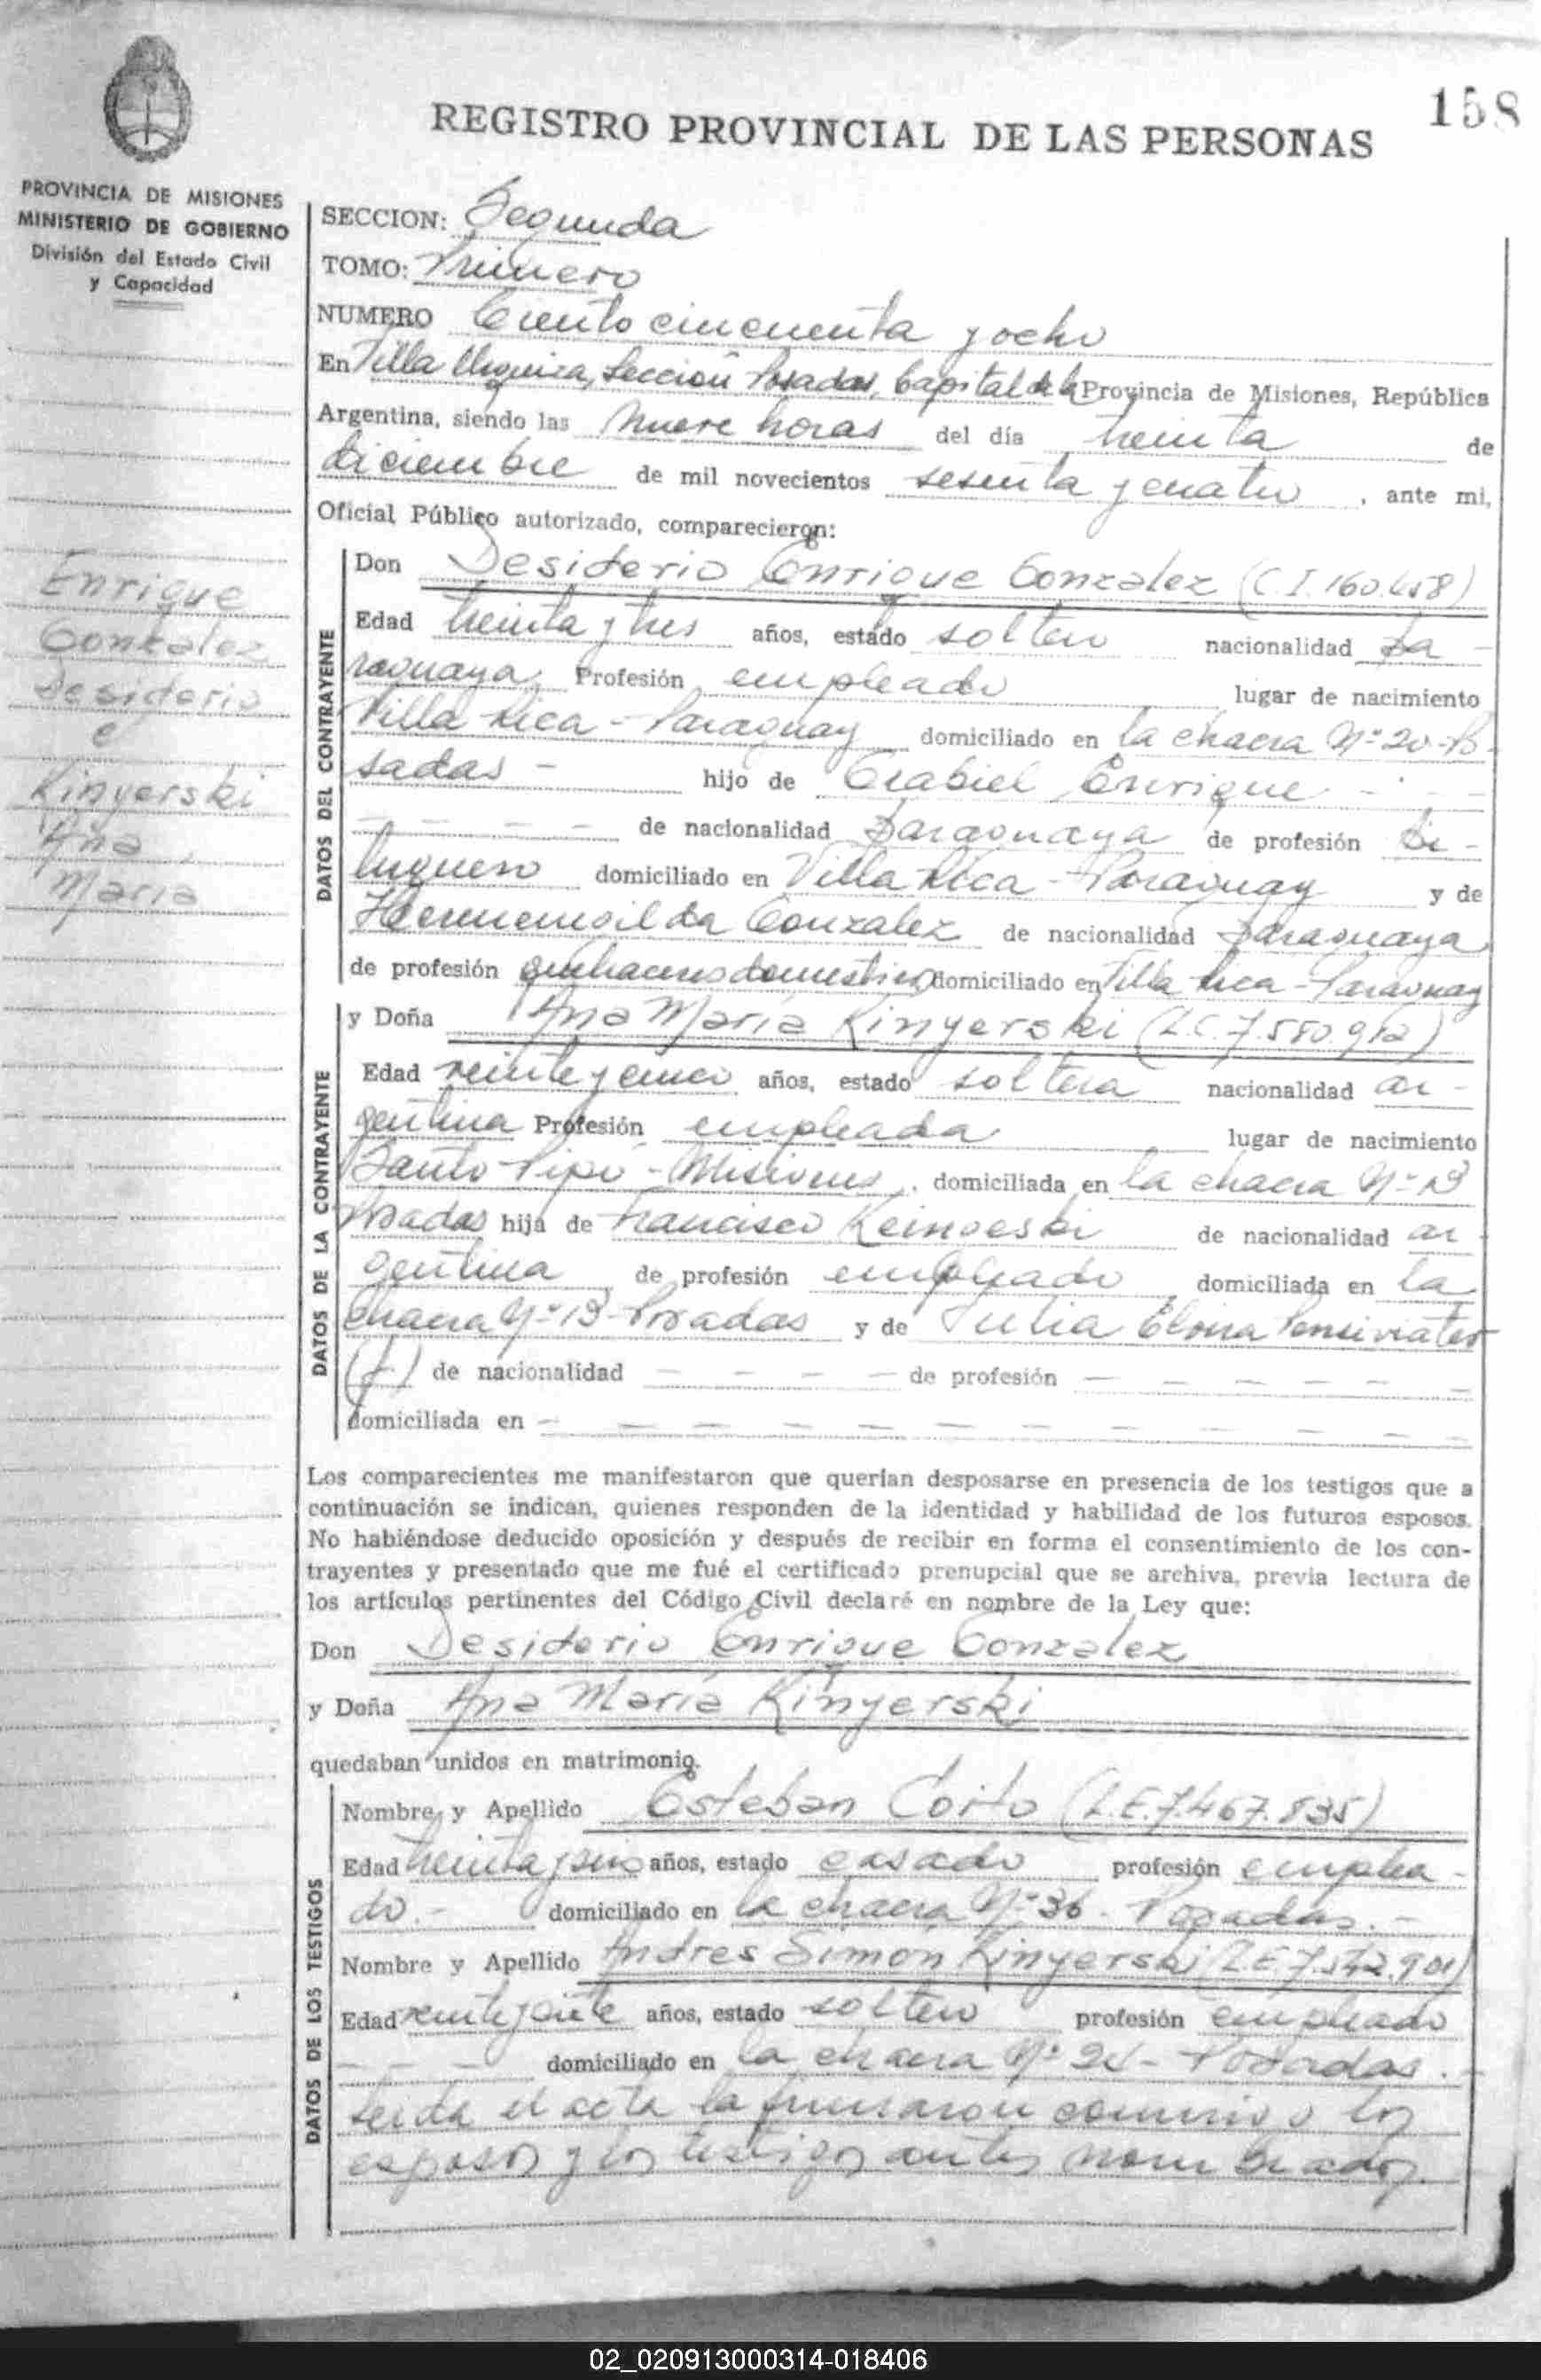 158
REGISTRO PROVINCIAL DE LAS PERSONAS
PROVINCIA DE MISIONES
MINISTERIO DE GOBIERNO
División del Estado Civil
y Capacidad
SECCION: Segunda
TOMO: Primero
NUMERO Ciento cincuenta y ocho
En Villa Urquiza, Sección Posadas, Capital de la Provincia de Misiones, República
Argentina, siendo las nueve horas del día treinta de
diciembre de mil novecientos sesenta y cuatro, ante mi,
Oficial Público autorizado, comparecieron:
Enrique
Gonzalez
Desiderio
e
Kinyerski
Ana
Maria
DATOS DEL CONTRAYENTE
Don Desiderio Enrique Gonzalez (C.I. 160.458)
Edad treinta y tres años, estado soltero nacionalidad pa-
raguaya, Profesión empleado lugar de nacimiento
Villa Rica - Paraguay domiciliado en la chacra Nº 20-Po-
sadas - hijo de Gabriel Enrique - - -
- - - - de nacionalidad paraguaya de profesión
domiciliado en Villa Rica - Paraguay y de
Hermenegilda Gonzalez de nacionalidad paraguaya
de profesión quehaceres domesticos domiciliado en Villa Rica - Paraguay
DATOS DE LA CONTRAYENTE
y Doña Ana Maria Kinyerski (L.C. 7.580.912)
Edad veinte y cinco años, estado soltera nacionalidad ar-
gentina Profesión empleada lugar de nacimiento
Santo Pipó - Misiones, domiciliada en la chacra Nº 19
Posadas hija de Francisco de nacionalidad ar-
gentina de profesión empleado domiciliada en la
chacra Nº 19 - Posadas y de Julia
(f) de nacionalidad - - - - de profesión - - - - - -
domiciliada en - - - - - - - - - - -
Los comparecientes me manifestaron que querían desposarse en presencia de los testigos que a
continuación se indican, quienes responden de la identidad y habilidad de los futuros esposos.
No habiéndose deducido oposición y después de recibir en forma el consentimiento de los con-
trayentes y presentado que me fué el certificado prenupcial que se archiva, previa lectura de
los artículos pertinentes del Código Civil declaré en nombre de la Ley que:
Don Desiderio Enrique Gonzalez
y Doña Ana Maria Kinyerski
quedaban unidos en matrimonio.
DATOS DE LOS TESTIGOS
Nombre y Apellido Esteban Corto (L.E. 7.467.835)
Edad treinta y seis años, estado casado profesión emplea-
do.- domiciliado en la chacra Nº 36. Posadas.-
Nombre y Apellido Andres Simon Kinyerski (L.E. 7.542.901)
Edad veinte y siete años, estado soltero profesión empleado
- - - domiciliado en la chacra Nº - Posadas.
Leida el acta la firmaron conmigo los
esposos y los testigos antes nombrados.
02_020913000314-018406